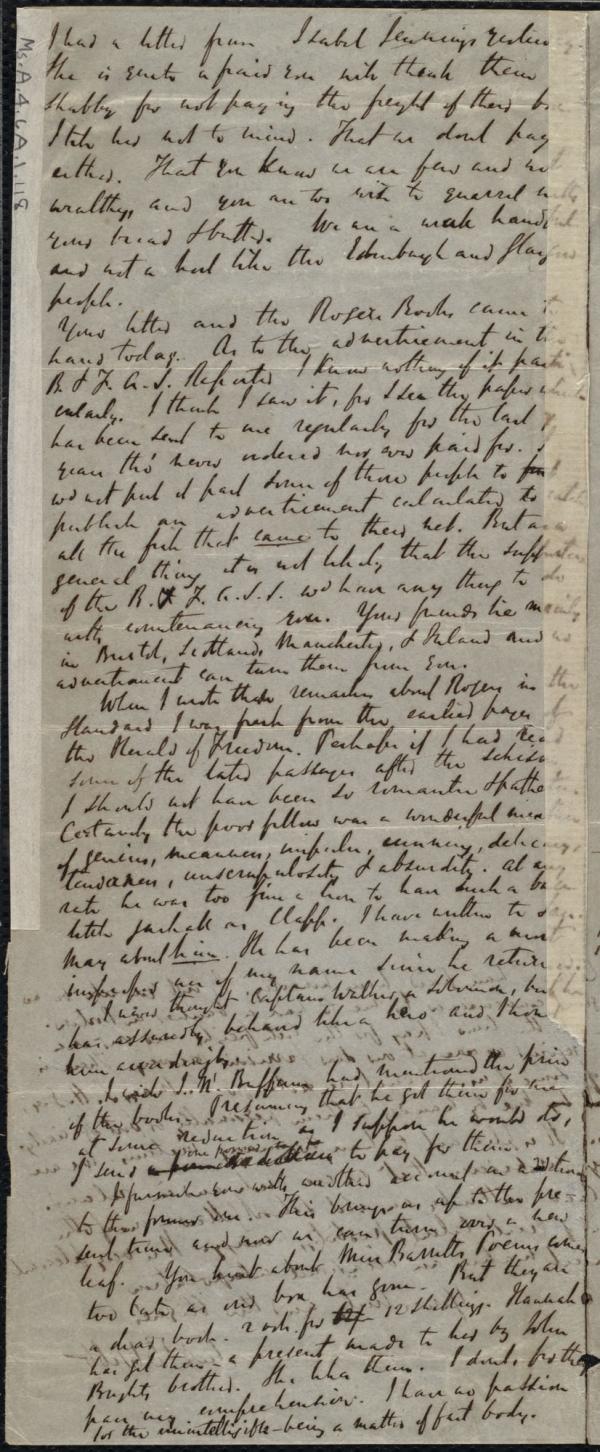 Ms.A.4.6A.1.118
I had a letter from Isabel Jennings yester
She is quite afraid you will think them
shabby for not paying the freight of their bo
I tell her not to mind. That we dont pay
either. That you know we are few and not
wealthy, and you are too wise to quarrel with
your bread & butter. We are a weak handful
and not a host like the Edinburgh and Glasgow
people.
Your letter and the Rogers Books came to
hand today. As to the advertisement in the
B & F. A. S. Reporter I know nothing of it parti
cularly. I think I saw it, for I see the paper which
has been sent to me regularly for the last
years tho' never ordered nor ever paid for. I
wd not put it past some of those people to
publish an advertisement calculated to
all the fish that came to their net. But as a
general thing it is not likely that the supporters
of the B. & F. A. S. S. wd have any thing to do
with countenancing you. Your friends lie mainly
in Bristol, Scotland, Manchester, & Ireland and no
advertisement can turn them from you.
When I wrote those remarks about Rogers in the
Standard I was fresh from the earlier pages of
the Herald of Freedom. Perhaps if I had read
some of the later passages after the schism
I should not have been so romantic & pathetic
Certainly the poor fellow was a wonderful mix
of genius, meanness, impulse, cunning, delicacy,
tenderness, unscrupulosity & absurdity. At any
rate he was too fine a lion to have such a base
little jackall as Clapp. I have written to
May about him. He has been making a most
use of my name since he returned.
I never thought Captain Walker a Solomon, but he
has assuredly behaved like a hero and I honor
him accordingly.
I wish J. N. Buffum had mentioned the price
of the books. Presuming that he got them for me
at some reduction as I suppose he would do,
I send to pay for them.
I furnish you with another account in addition
to the former one. This brings us up to the pre-
sent time and now we can turn over a new
leaf. You write about Miss Barretts Poems
too late, as our box has gone. But they are
a dear book. 2 vols. for 12 shillings. Hannah
has got them - a present made to her by John
Brights brother. She likes them. I dont, for they
pass my comprehension. I have no passion
for the unintelligible - being a matter of fact body.